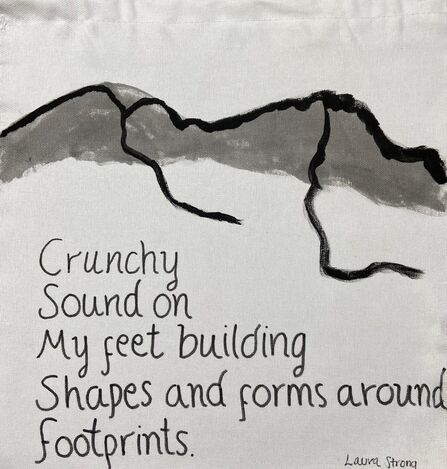 Crunchy
Sound on
My feet building
Shapes and forms around
footprints.
Laura Strong